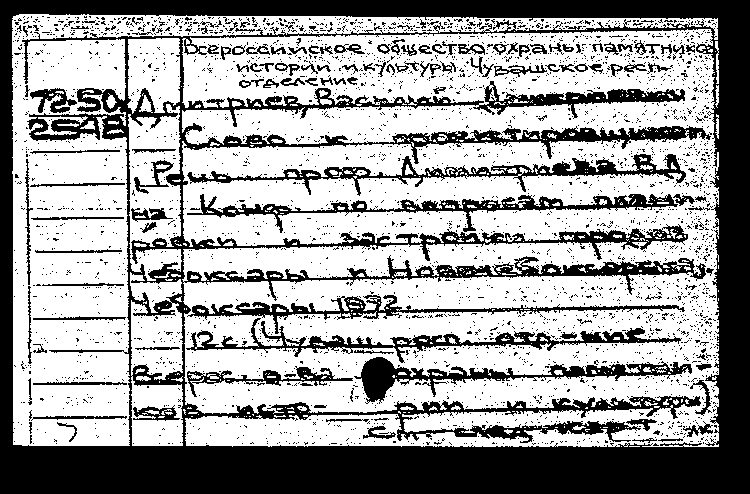 Всероссийское общество охраны памятников
истории и культуры. Чувашское респ.
отделение.
72-50
2548
Дмитриев, Василий Димитриевич.
Слово к проектировщикам.
[Речь проф. Димитриева В.Д.
на Конф. по вопросам плани-
ровки и застройки городов
Чебоксары и Новочебоксарска].
Чебоксары, 1972.
12 с. (Чуваш. респ. отд-ние
Всерос. о-ва охраны памятни-
ков исто- рии и культуры)
см. след. карт.